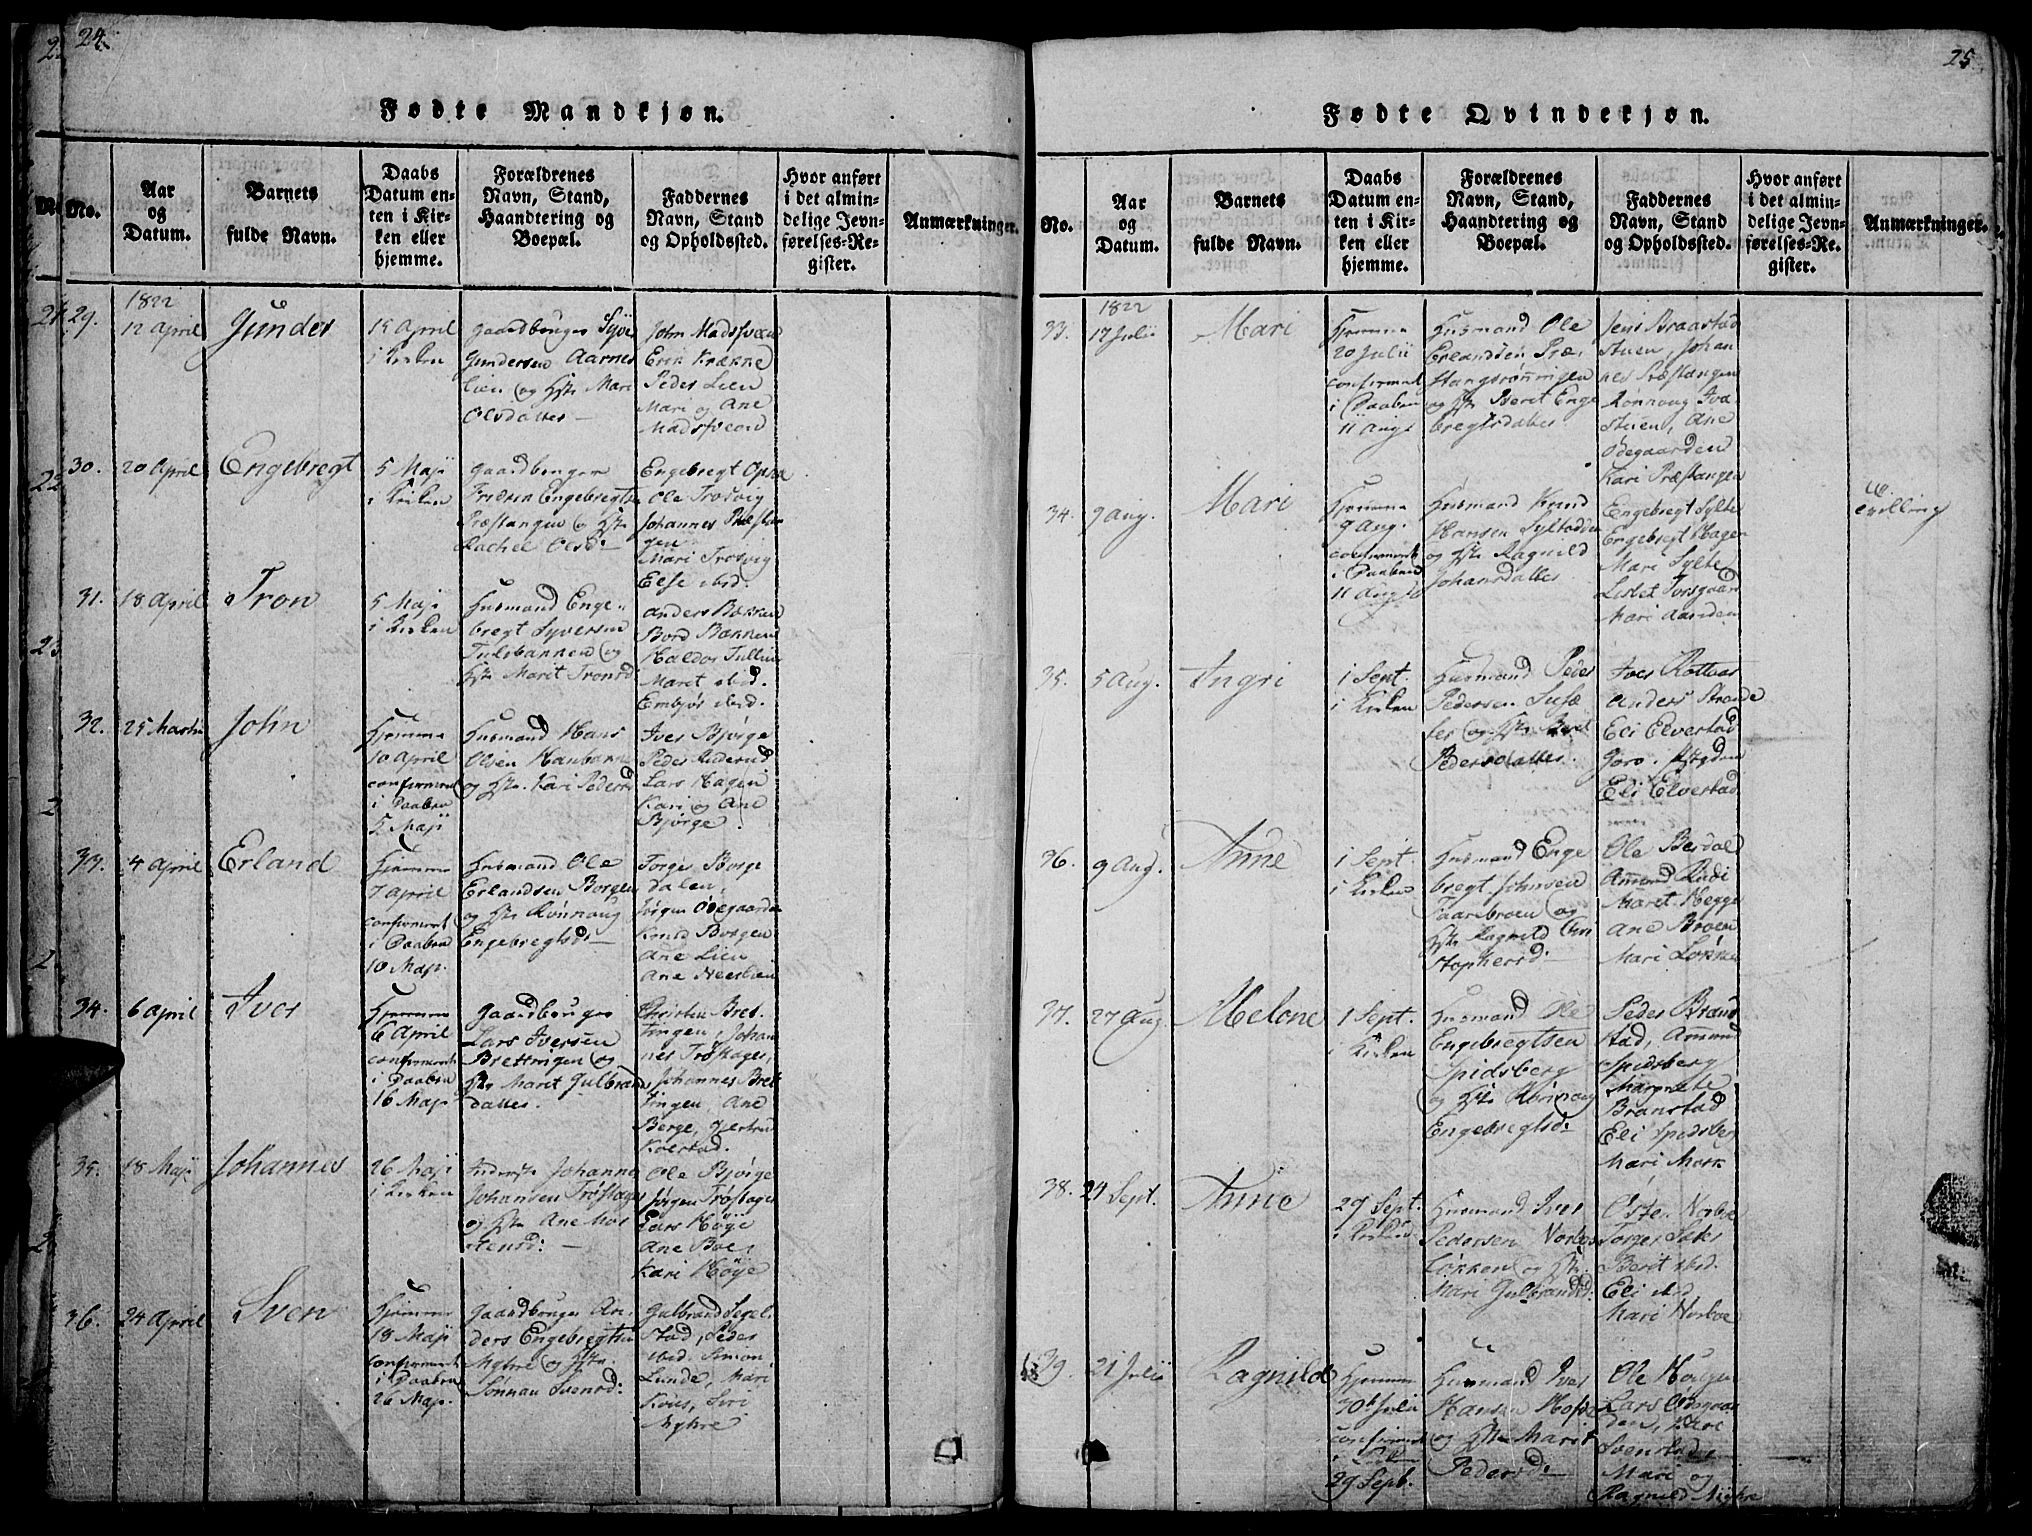 24.
Fødte Mandkjøn.
No.
Aar
og
Datum.
Barnets
fulde Navn.
Daabs
Datum en-
ten i Kir-
ken eller
hjemme.
Forældrenes
Navn, Stand,
Haandtering og
Boepæl.
Faddernes
Navn, Stand
og Opholdssted.
Hvor anført
i det almin-
delige Jevn-
førelses-Re-
gister.
Anmærkninger.
29.
1822
12 April
Gunder
19 April
i Kirken
Gaardbruger Syver
Gundersen Aarnes
lien og Hst Mari
Olsdatter
John Madsveen
Erik Krække
Peder Lien
Mari og Ane
Madsveen
30.
20 April
Engebregt
5 Maji
i Kirken
Gaardbruger
Engebregts
Præstangen og Hst
Rachel Olsd:
Engebregt
Ole Trosvig
Johannes Præstan
gen
Mari Trosvig
Else ibid.
31.
18 April
Tron
5 Maji
i Kirken
Husmand Enge-
bregt Syversen
og
Hst Marit Tronsd
Anders Bækken
Bord Bækken
Haldor
Maret ibid.
Embjør ibid.
32.
25 Martii
John
Hjemme
10 April
confirmeret
i Daaben
5 Maji
Husmand Hans
Olsen
og Hst. Kari Pedersd
Iver Bjørge
Peder Ruderud
Lars Hagen
Kari og Ane
Bjørge.
33.
4 April
Erland
Hjemme
7 April
confirmeret
i Daaben
10 Maji
Husmand Ole
Erlandsen Borgen
og Hst Rønnoug
Engebregtsd:
Torge Borge
dalen,
Jørgen Ødegaarden
Knud Borgen
Ane Lien
Ane
34.
6 April
Iver
Hjemme
6 April
confirmeret
i Daaben
16 Maji
Gaardbruger
Lars Iversen
Brettingen og
Hst Marit Gulbrands
datter.
Christen Bret-
tingen, Johan
nes Trøstager,
Johannes Bret
tingen, Ane
Berge, Gjertrud
Kolstad.
35.
18 Maji
Johannes
26 Maji
i Kirken
Johannes
Johansen Trøstager
og Hst Ane Mor
tensd:
Ole Bjørge
Jørgen Trøstager
Lars Høye
Ane Boe,
Kari Høye
36.
24 April
Sven
Hjemme
18 Maji
confirmeret
i Daaben
26 Maji
Gaardbruger An-
ders Engebregtsen
Myhre og Hst.
Sønnau Svensd:
Gulbrand Segel-
stad, Peder
ibid. Simon
Lunde, Mari
Kous, Siri
Myhre
25
Fødte Qvindekjøn.
No.
Aar
og
Datum.
Barnets
fulde Navn.
Daabs
Datum en-
ten i Kir-
ken eller
hjemme.
Forældrenes
Navn, Stand,
Haandtering og
Boepæl.
Faddernes
Navn, Stand
og Opholdssted.
Hvor anført
i det almin-
delige Jevn-
førelses-Re-
gister.
Anmærkninger.
33.
1822
17 Julii
Mari
Hjemme
20 Julii
confirmeret
i Daaben
11 Aug:
Husmand Ole
Erlandsen Præ-
stangrønningen
og Hst Berit Enge
bregtsdatter
Jens Braastad
stuen, Johan
nes Præstangen
Rønnoug Iva
stuen, Ane
Ødegaarden
Kari Præstangen
34.
9 Aug.
Mari
Hjemme
9 Aug.
confirmeret
i Daaben
11 Aug
Husmand Knud
Hansen Sylteødden
og Hst Ragnild
Johansdatter
Engebregt Sylte
Engebregt Hagen
Mari Sylte
Lisbet Torsgaard
Mari
tvilling
35.
5 Aug.
Ingri
1 Sept.
i Kirken
Husmand Peder
Pedersen
og Hst Berit
Pedersdatter.
Iver
Anders Strande
Eli Elverstad
Goro
Eli Elverstad
36.
9 Aug.
Anne
1 Sept.
i Kirken
Husmand Enge
bregt Johnsen
og
Hst Ragnild Chri
stophersd:
Ole Berdal
Ammund Rudi
Maret Hegge
Ane Broen
Mari Løkken
37.
27 Aug
Melone
1 Sept.
i Kirken
Husmand Ole
Engebregtsen
Spidsberg
og Hst Rønnoug
Engebregtsd:
Peder Brand
stad, Ammund
Spidsberg
Margrete
Branstad
Eli Spidsberg
Mari Mork
38.
24 Sept.
Anne
29 Sept.
i Kirken
Husmand Iver
Pedersen
Løkken og Hst.
Mari Gulbrandsd:
Østen
Torger
Berit ibid.
Eli ibid
Mari
39.
21 Julii
Ragnild
Hjemme
30te Julii
confirmeret
i Kirken
29 Sept.
Husmand Iver
Hansen
og Hst Marit
Pedersd:
Ole Haugen
Lars Ødegaar
den, Iver
Svenstad
Mari og
Ragnild Myhre